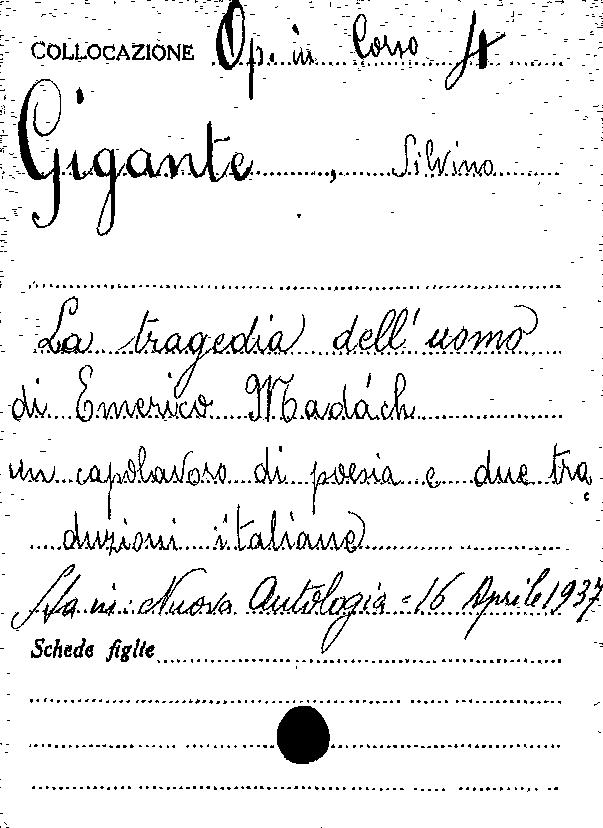 COLLOCAZIONE Op. in Corso 4
Gigante, Silvino
La tragedia dell'uomo
di Emerico Madách
un capolavoro di poesia e due tra
duzioni italiane
Sta in: Nuova Antologia = 16 Aprile 1937
Schede figlie